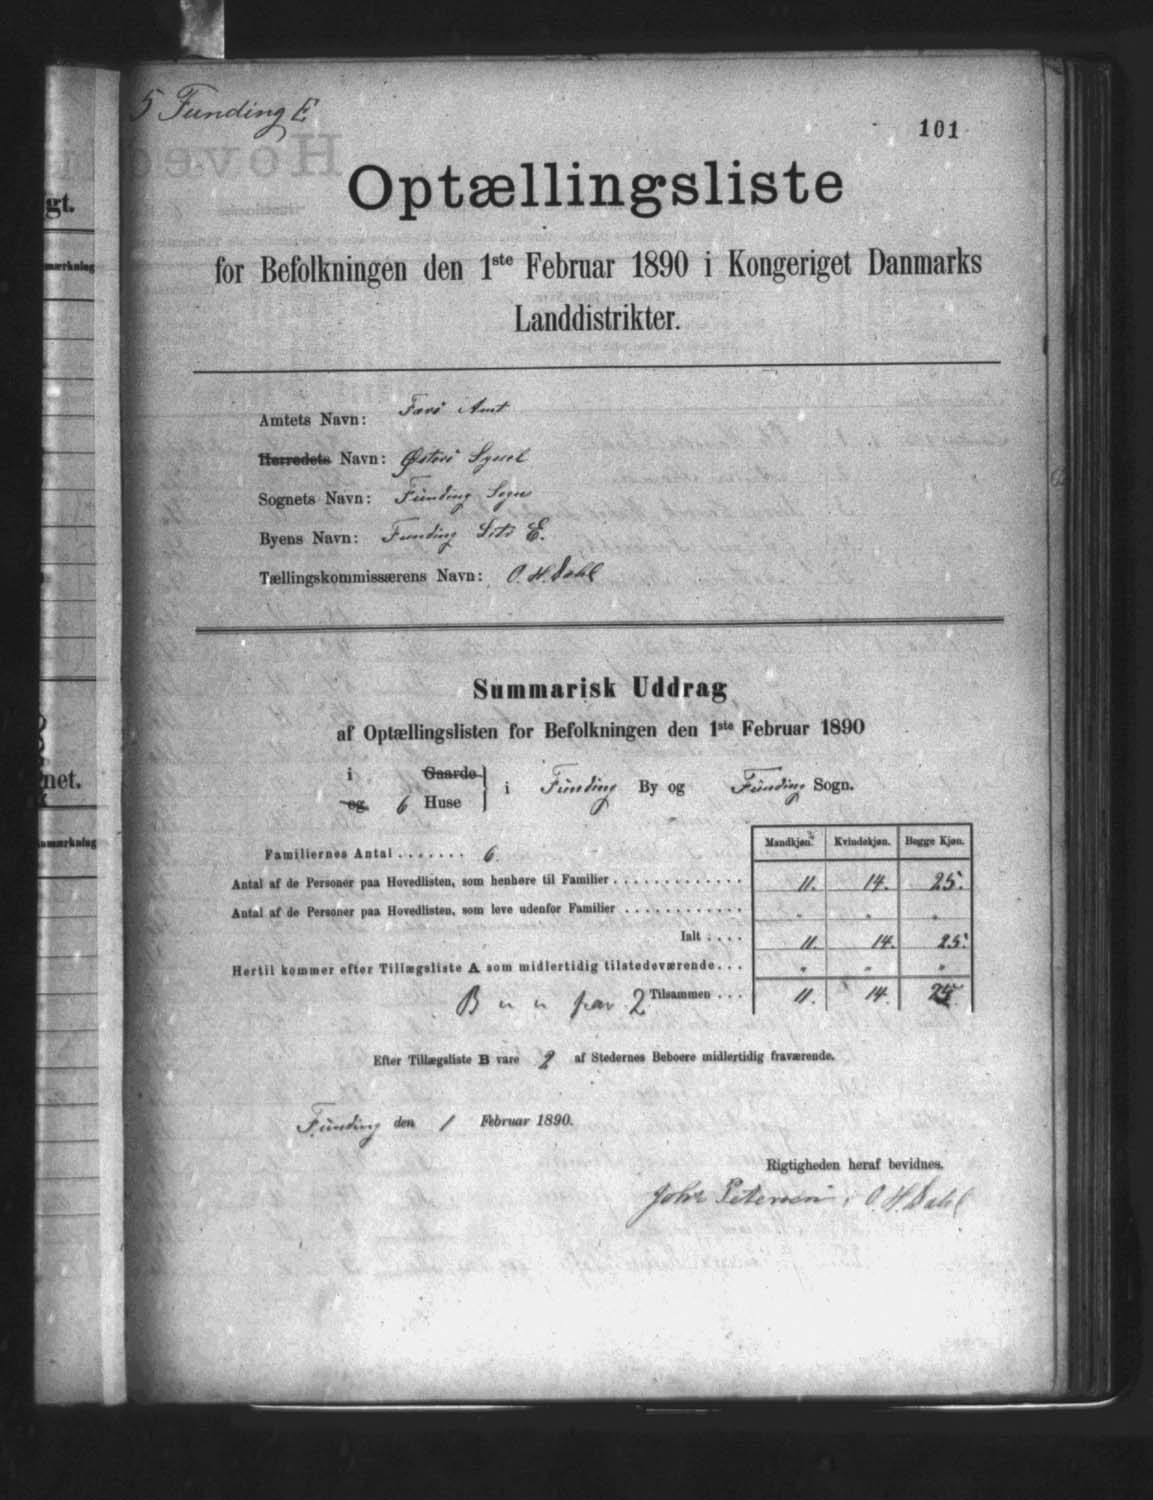 5 Funding E
101
Optællingsliste
for Befolkningen den 1ste Februar 1890 i Kongeriget Danmarks
Landdistrikter.
Amtets Navn: Færö Amt
Herredets Navn: Østerö Syssel
Sognets Navn: Funding Sogn
Byens Navn: Funding Litr E.
Tællingskommissærens Navn: O. H. Dahl
Summarisk Uddrag
af Optællingslisten for Befolkningen den 1ste Februar 1890
i Gaarde
og 6 Huse } i Funding By og Funding Sogn.
Mandkjøn. Kvindekjøn. Begge Kjøn.
Familiernes Antal . . . . . . . 6.
Antal af de Personer paa Hovedlisten, som henhøre til Familier . . . . . . . . . . . . . 11. 14. 25.
Antal af de Personer paa Hovedlisten, som leve udenfor Familier . . . . . . . . . . . . " " "
Ialt . . . . 11. 14. 25.
Hertil kommer efter Tillægsliste A som midlertidig tilstedeværende. . . " " "
B " " fær 2 Tilsammen . . . 11. 14. 25.
Efter Tillægsliste B vare 2 af Stedernes Beboere midlertidig fraværende.
Funding den 1 Februar 1890.
Rigtigheden heraf bevidnes.
Johs Petersen, O. H. Dahl
gt.
mærkning
net.
nmærkning